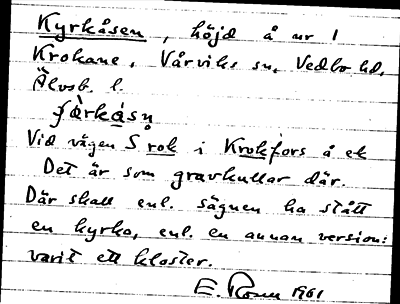 Kyrkåsen, höjd å nr 1
Krokane, Vårviks sn, Vedbo hd,
Älvsb. l.
Vid vägen S rok i Krokfors å ek
Det är som gravkullar där.
Där skall enl. sägnen ha stått
en kyrka, enl. en annan version:
varit ett kloster.
E. 1961